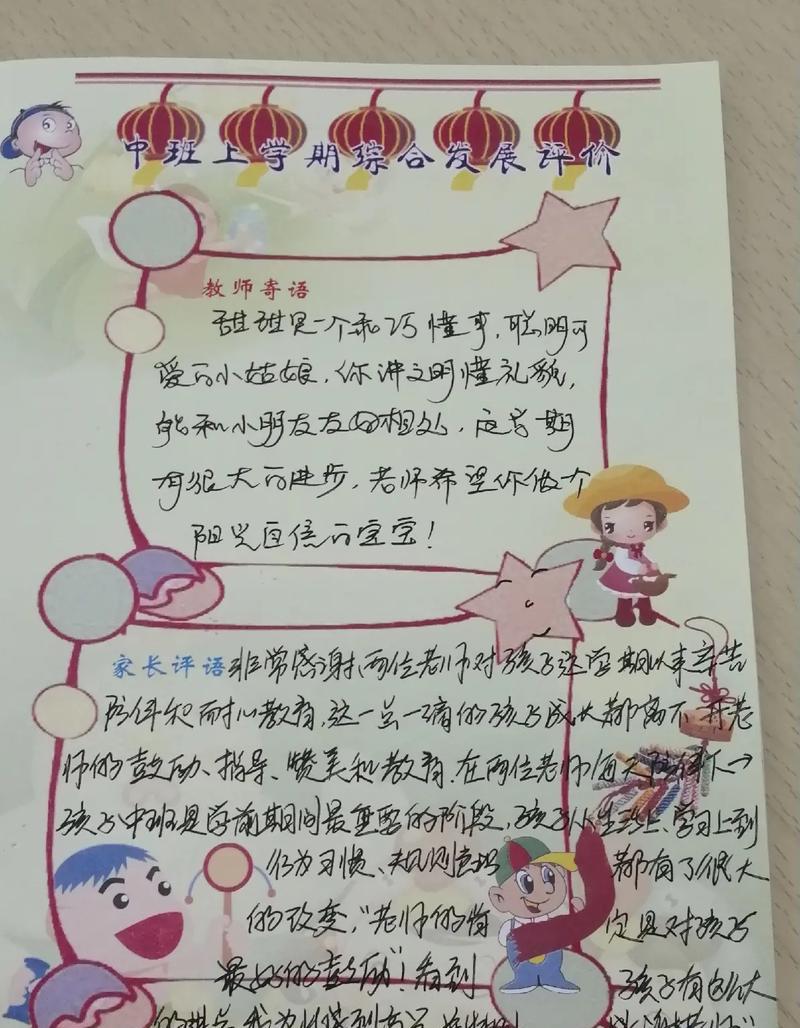 中班上学期综合发展评价
教师寄语
甜甜是一个乖巧懂事,聪明可
爱的小姑娘,你讲文明懂礼貌,
能和小朋友友好相处,这学期
有很大的进步,老师希望你做个
阳光自信的宝宝!
家长评语 非常感谢两位老师对孩子这学期以来辛苦
陪伴和耐心教育,这一点一滴的孩子成长都离不开老
师的鼓励、指导、赞美和教育.在两位老师每天陪伴下→
孩子中班是学前期间最重要的阶段,孩子从生活上、学习上到
行为习惯、规则意识 都有了很大
的改变,“老师的肯 定是对孩子
最好的鼓励”!看到 孩子有